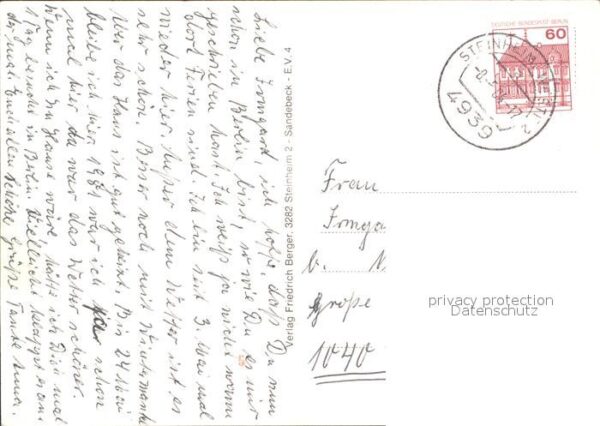 Liebe Irmgard, ich hoffe, daß Du nun
schon in Berlin bist, so wie Du es mir
geschrieben hast. Ich weiß ja nicht wann
dort Ferien sind. Ich bin seit 3. Mai mal
wieder hier. Außer dem Wetter ist es
sehr schön. Besser noch mit Wintermantel
Aber das Haus ist gut geheizt. Bis 24. Mai
bleibe ich hier 1981 war ich schon
mal hier da war das Wetter schöner.
Wenn ich zu Hause wäre hätte ich Dich mal
1 Tag besucht in Berlin. Vielleicht klappt es ein
Euch allen schöne Grüße Tante
Verlag Friedrich Berger, 3282 Steinheim 2 - Sandebeck · E.V. 4
DEUTSCHE BUNDESPOST BERLIN
60
STEINHEIM
4939
2
Frau
Irmga
b.
große
1040
privacy protection
Datenschutz